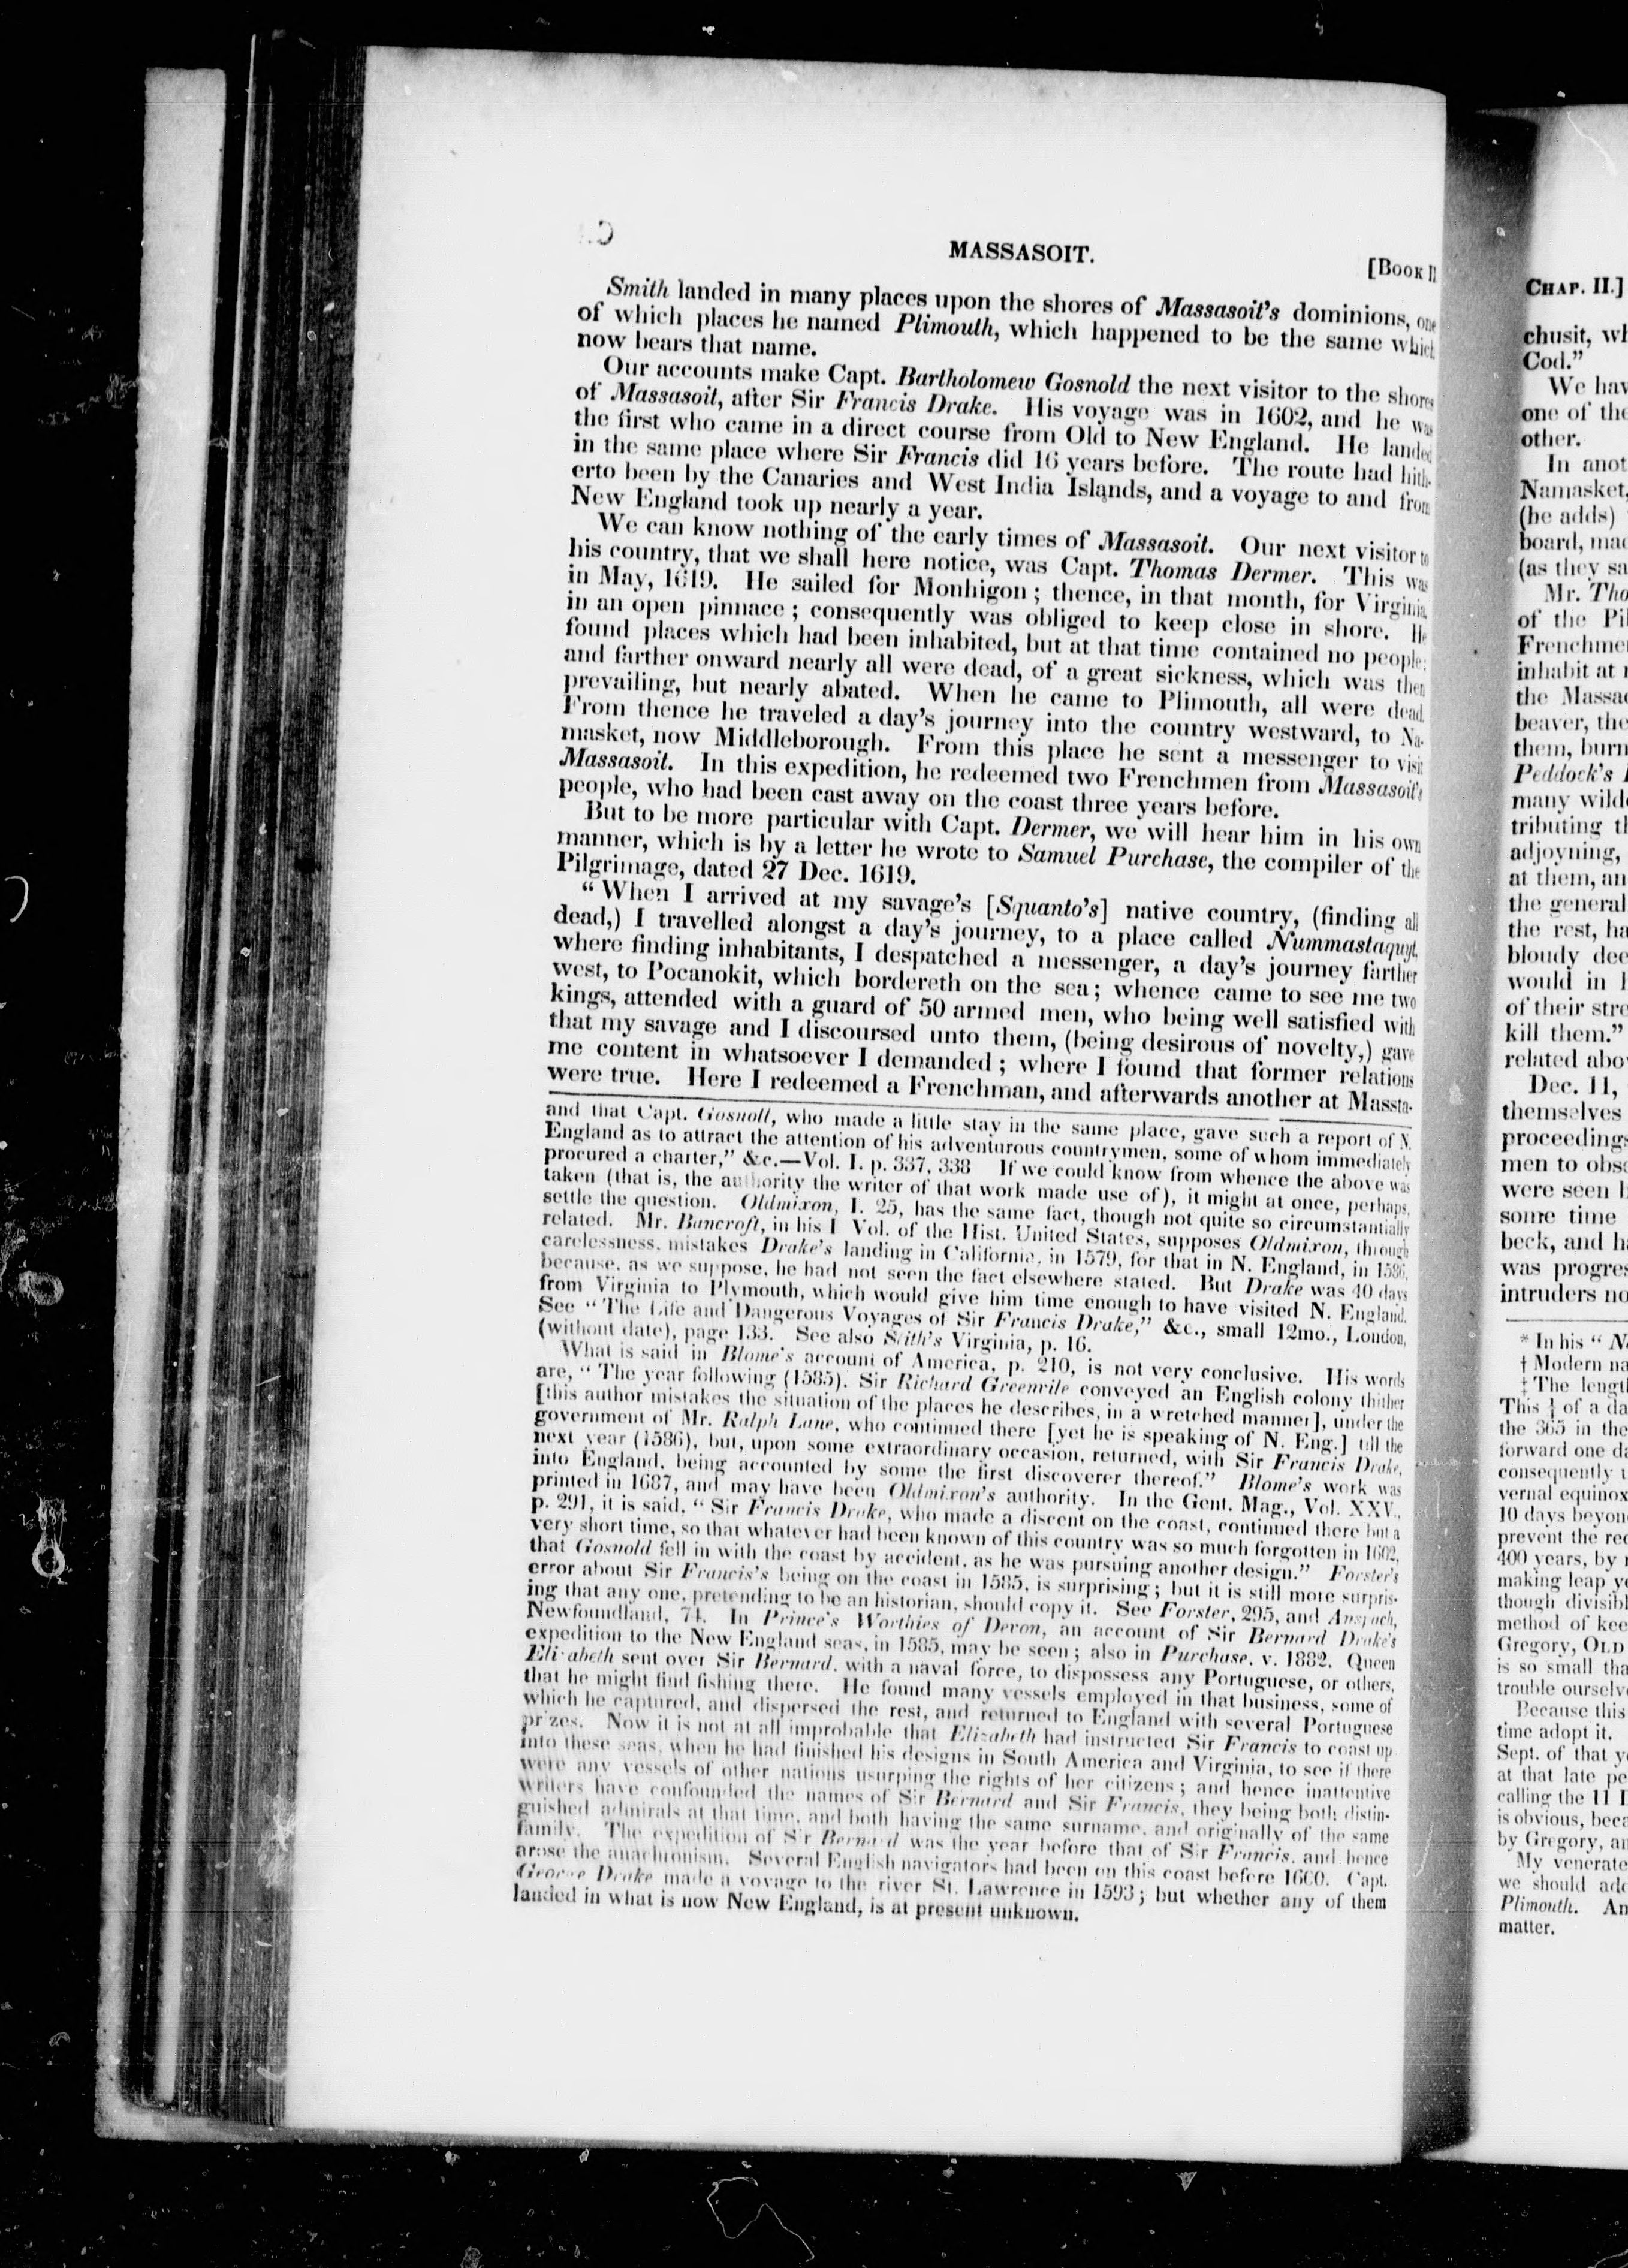 MASSASOIT.
[BOOK II
Smith landed in many places upon the shores of Massasoit's dominions, one
of which places he named Plimouth, which happened to be the same which
now bears that name.
Our accounts make Capt. Bartholomew Gosnold the next visitor to the shores
of Massasoit, after Sir Francis Drake. His voyage was in 1602, and he was
the first who came in a direct course from Old to New England. He landed
in the same place where Sir Francis did 16 years before. The route had hith-
erto been by the Canaries and West India Islands, and a voyage to and from
New England took up nearly a year.
We can know nothing of the early times of Massasoit. Our next visitor to
his country, that we shall here notice, was Capt. Thomas Dermer. This was
in May, 1619. He sailed for Monhigon; thence, in that month, for Virginia,
in an open pinnace; consequently was obliged to keep close in shore. He
found places which had been inhabited, but at that time contained no people;
and farther onward nearly all were dead, of a great sickness, which was then
prevailing, but nearly abated. When he came to Plimouth, all were dead.
From thence he traveled a day's journey into the country westward, to Na-
masket, now Middleborough. From this place he sent a messenger to visit
Massasoit. In this expedition, he redeemed two Frenchmen from Massasoit's
people, who had been cast away on the coast three years before.
But to be more particular with Capt. Dermer, we will hear him in his own
manner, which is by a letter he wrote to Samuel Purchase, the compiler of the
Pilgrimage, dated 27 Dec. 1619.
"When I arrived at my savage's [Squanto's] native country, (finding all
dead,) I travelled alongst a day's journey, to a place called Nummastaquyt,
where finding inhabitants, I despatched a messenger, a day's journey farther
west, to Pocanokit, which bordereth on the sea; whence came to see me two
kings, attended with a guard of 50 armed men, who being well satisfied with
that my savage and I discoursed unto them, (being desirous of novelty,) gave
me content in whatsoever I demanded; where I found that former relations
were true. Here I redeemed a Frenchman, and afterwards another at Massta-
and that Capt. Gosnoll, who made a little stay in the same place, gave such a report of N.
England as to attract the attention of his adventurous countrymen, some of whom immediately
procured a charter," &c.—Vol. I. p. 337, 338 If we could know from whence the above was
taken (that is, the authority the writer of that work made use of), it might at once, perhaps,
settle the question. Oldmixon, I. 25, has the same fact, though not quite so circumstantially
related. Mr. Bancroft, in his I Vol. of the Hist. United States, supposes Oldmixon, through
carelessness, mistakes Drake's landing in California, in 1579, for that in N. England, in 1586,
because, as we suppose, he had not seen the fact elsewhere stated. But Drake was 40 days
from Virginia to Plymouth, which would give him time enough to have visited N. England.
See "The Life and Dangerous Voyages of Sir Francis Drake," &c., small 12mo., London,
(without date), page 133. See also Stith's Virginia, p. 16.
What is said in Blome's account of America, p. 210, is not very conclusive. His words
are, "The year following (1585). Sir Richard Greenvile conveyed an English colony thither
[this author mistakes the situation of the places he describes, in a wretched manner], under the
government of Mr. Ralph Lane, who continued there [yet he is speaking of N. Eng.] till the
next year (1586), but, upon some extraordinary occasion, returned, with Sir Francis Drake,
into England, being accounted by some the first discoverer thereof." Blome's work was
printed in 1687, and may have been Oldmixon's authority. In the Gent. Mag., Vol. XXV.,
p. 291, it is said, "Sir Francis Drake, who made a discent on the coast, continued there but a
very short time, so that whatever had been known of this country was so much forgotten in 1602,
that Gosnold fell in with the coast by accident, as he was pursuing another design." Forster's
error about Sir Francis's being on the coast in 1585, is surprising; but it is still more surpris-
ing that any one, pretending to be an historian, should copy it. See Forster, 295, and Anspach,
Newfoundland, 74. In Prince's Worthies of Devon, an account of Sir Bernard Drake's
expedition to the New England seas, in 1585, may be seen; also in Purchase, v. 1882. Queen
Elizabeth sent over Sir Bernard, with a naval force, to dispossess any Portuguese, or others,
that he might find fishing there. He found many vessels employed in that business, some of
which he captured, and dispersed the rest, and returned to England with several Portuguese
prizes. Now it is not at all improbable that Elizabeth had instructed Sir Francis to coast up
into these seas, when he had finished his designs in South America and Virginia, to see if there
were any vessels of other nations usurping the rights of her citizens; and hence inattentive
writers have confounded the names of Sir Bernard and Sir Francis, they being both distin-
guished admirals at that time, and both having the same surname, and originally of the same
family. The expedition of Sir Bernard was the year before that of Sir Francis, and hence
arose the anachronism. Several English navigators had been on this coast before 1600. Capt.
George Drake made a voyage to the river St. Lawrence in 1593; but whether any of them
landed in what is now New England, is at present unknown.
CHAP. II.]
chusit, wh
Cod."
We hav
one of the
other.
In anot
Namasket,
(he adds)
board, mad
(as they sa
Mr. Tho
of the Pil
Frenchmen
inhabit at
the Massac
beaver, the
them, burn
Peddock's
many wild
tributing th
adjoyning,
at them, an
the general
the rest, ha
bloudy dee
would in
of their stre
kill them."
related abo
Dec. 11,
themselves
proceedings
men to obse
were seen
some time
beck, and ha
was progres
intruders no
* In his "
† Modern na
‡ The length
This ¼ of a da
the 365 in the
forward one da
consequently
vernal equinox
10 days beyon
prevent the rec
400 years, by
making leap ye
though divisibl
method of kee
Gregory, OLD
is so small tha
trouble ourselv
Because this
time adopt it.
Sept. of that y
at that late pe
calling the 11
is obvious, beca
by Gregory, an
My venerate
we should ado
Plimouth. An
matter.